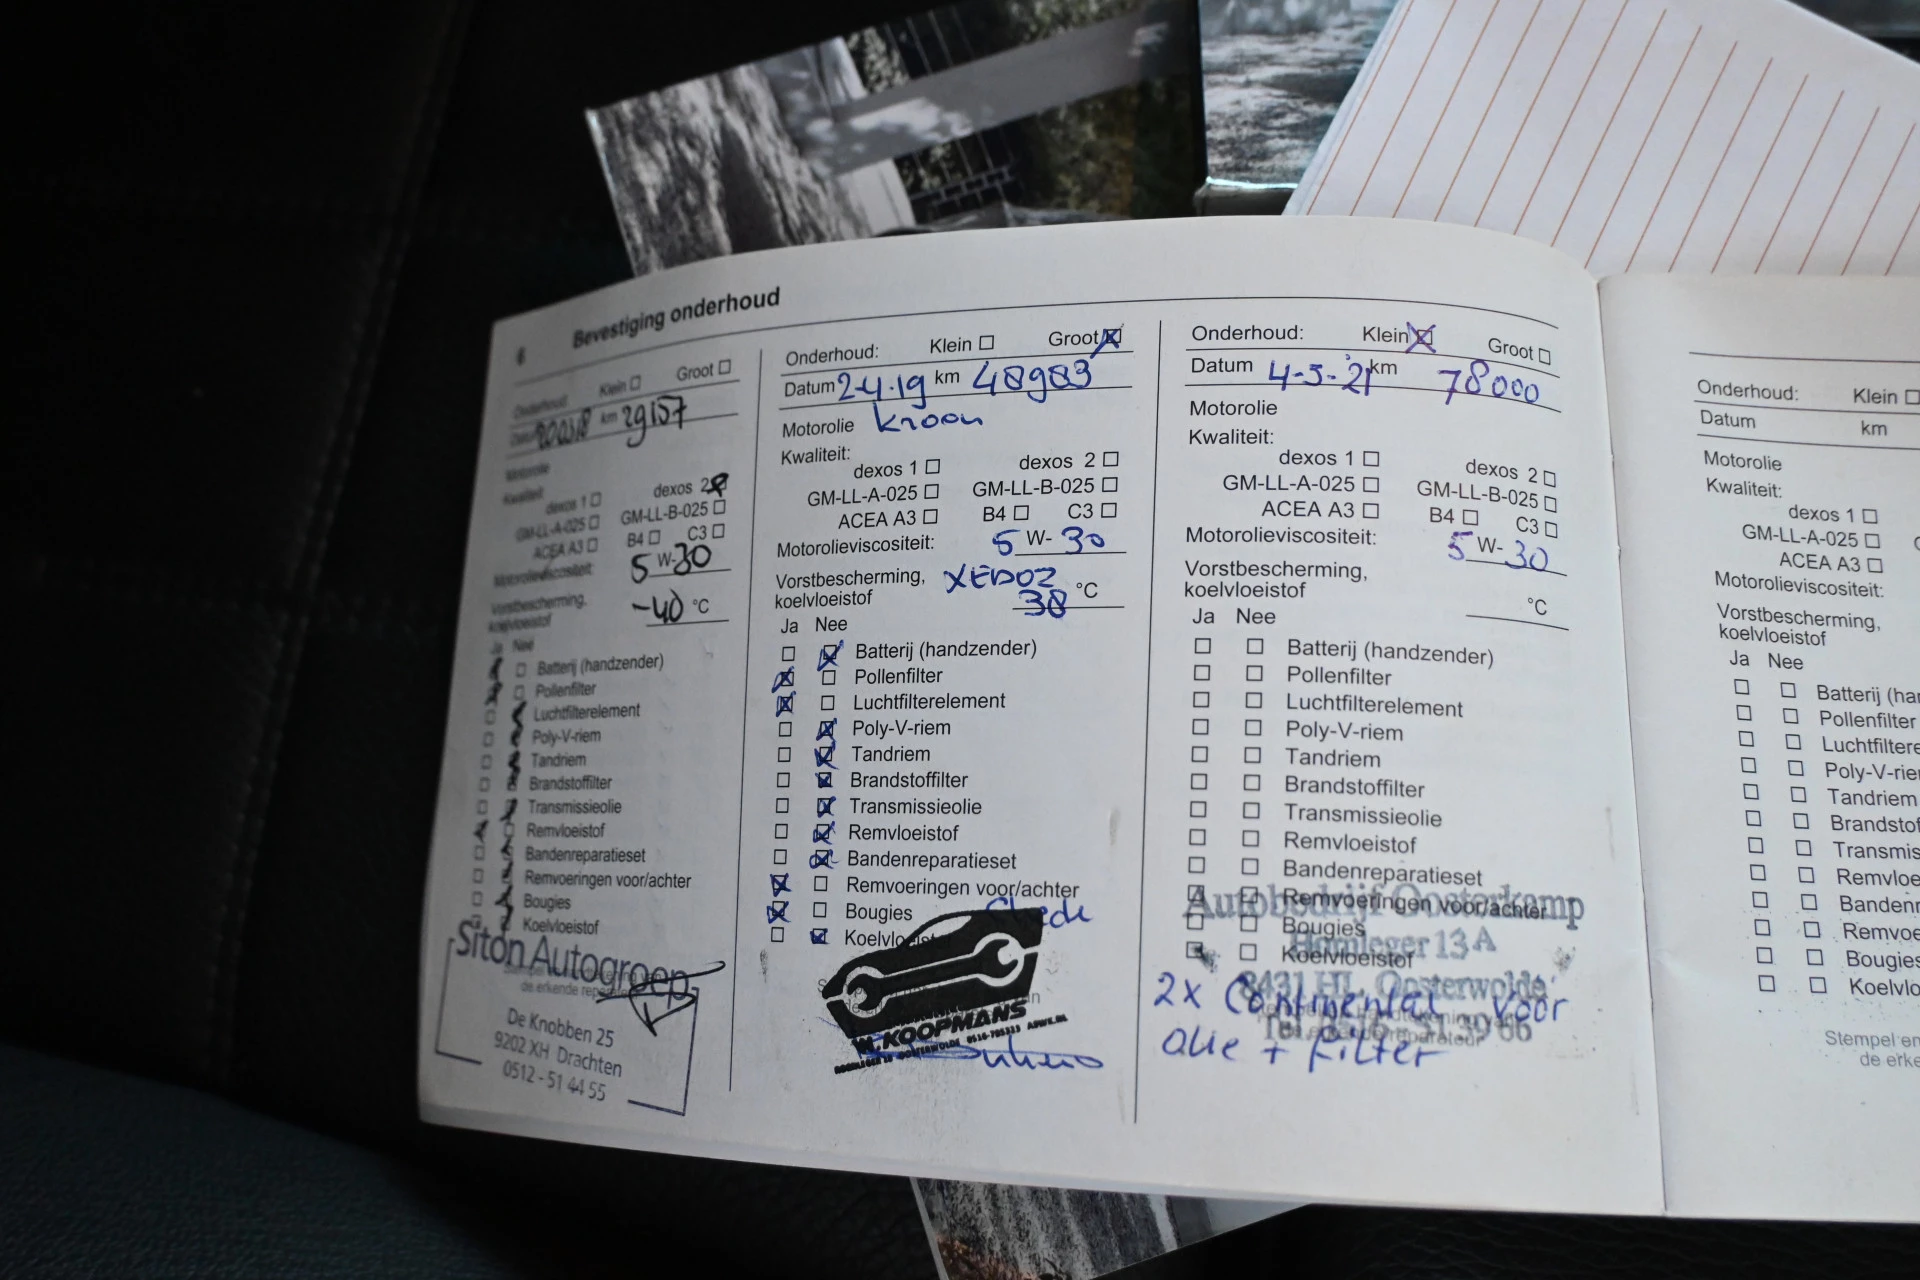 6 Bevestiging onderhoud
Onderhoud: Klein Groot
km 29157
Motorolie
Kwaliteit:
dexos 1 dexos 2
GM-LL-A-025 GM-LL-B-025
ACEA A3 B4 C3
Motorolieviscositeit: 5 W-30
Vorstbescherming,
koelvloeistof -40 °C
Ja Nee
Batterij (handzender)
Pollenfilter
Luchtfilterelement
Poly-V-riem
Tandriem
Brandstoffilter
Transmissieolie
Remvloeistof
Bandenreparatieset
Remvoeringen voor/achter
Bougies
Koelvloeistof
Siton Autogroep
De Knobben 25
9202 XH Drachten
0512 - 51 44 55
Onderhoud: Klein Groot
Datum 2-4-19 km 48983
Motorolie Kroon
Kwaliteit:
dexos 1 dexos 2
GM-LL-A-025 GM-LL-B-025
ACEA A3 B4 C3
Motorolieviscositeit: 5 W- 30
Vorstbescherming,
koelvloeistof 38 °C
Ja Nee
Batterij (handzender)
Pollenfilter
Luchtfilterelement
Poly-V-riem
Tandriem
Brandstoffilter
Transmissieolie
Remvloeistof
Bandenreparatieset
Remvoeringen voor/achter
Bougies
W.KOOPMANS
Onderhoud: Klein Groot
Datum 4-5-'21 km 78000
Motorolie
Kwaliteit:
dexos 1 dexos 2
GM-LL-A-025 GM-LL-B-025
ACEA A3 B4 C3
Motorolieviscositeit: 5 W- 30
Vorstbescherming,
koelvloeistof °C
Ja Nee
Batterij (handzender)
Pollenfilter
Luchtfilterelement
Poly-V-riem
Tandriem
Brandstoffilter
Transmissieolie
Remvloeistof
Bandenreparatieset
Remvoeringen voor/achter
Bougies
Koelvloeistof
Autobedrijf Oosterkamp
Hornleger 13 A
8431 HL Oosterwolde
2x Continental voor
olie + filter
Onderhoud: Klein
Datum km
Motorolie
Kwaliteit:
dexos 1
GM-LL-A-025
ACEA A3
Motorolieviscositeit:
Vorstbescherming,
koelvloeistof
Ja Nee
Batterij (har
Pollenfilter
Luchtfiltere
Poly-V-rie
Tandriem
Brandstof
Transmis
Remvloe
Bandenr
Remvoe
Bougies
Koelvlo
Stempel en
de erke